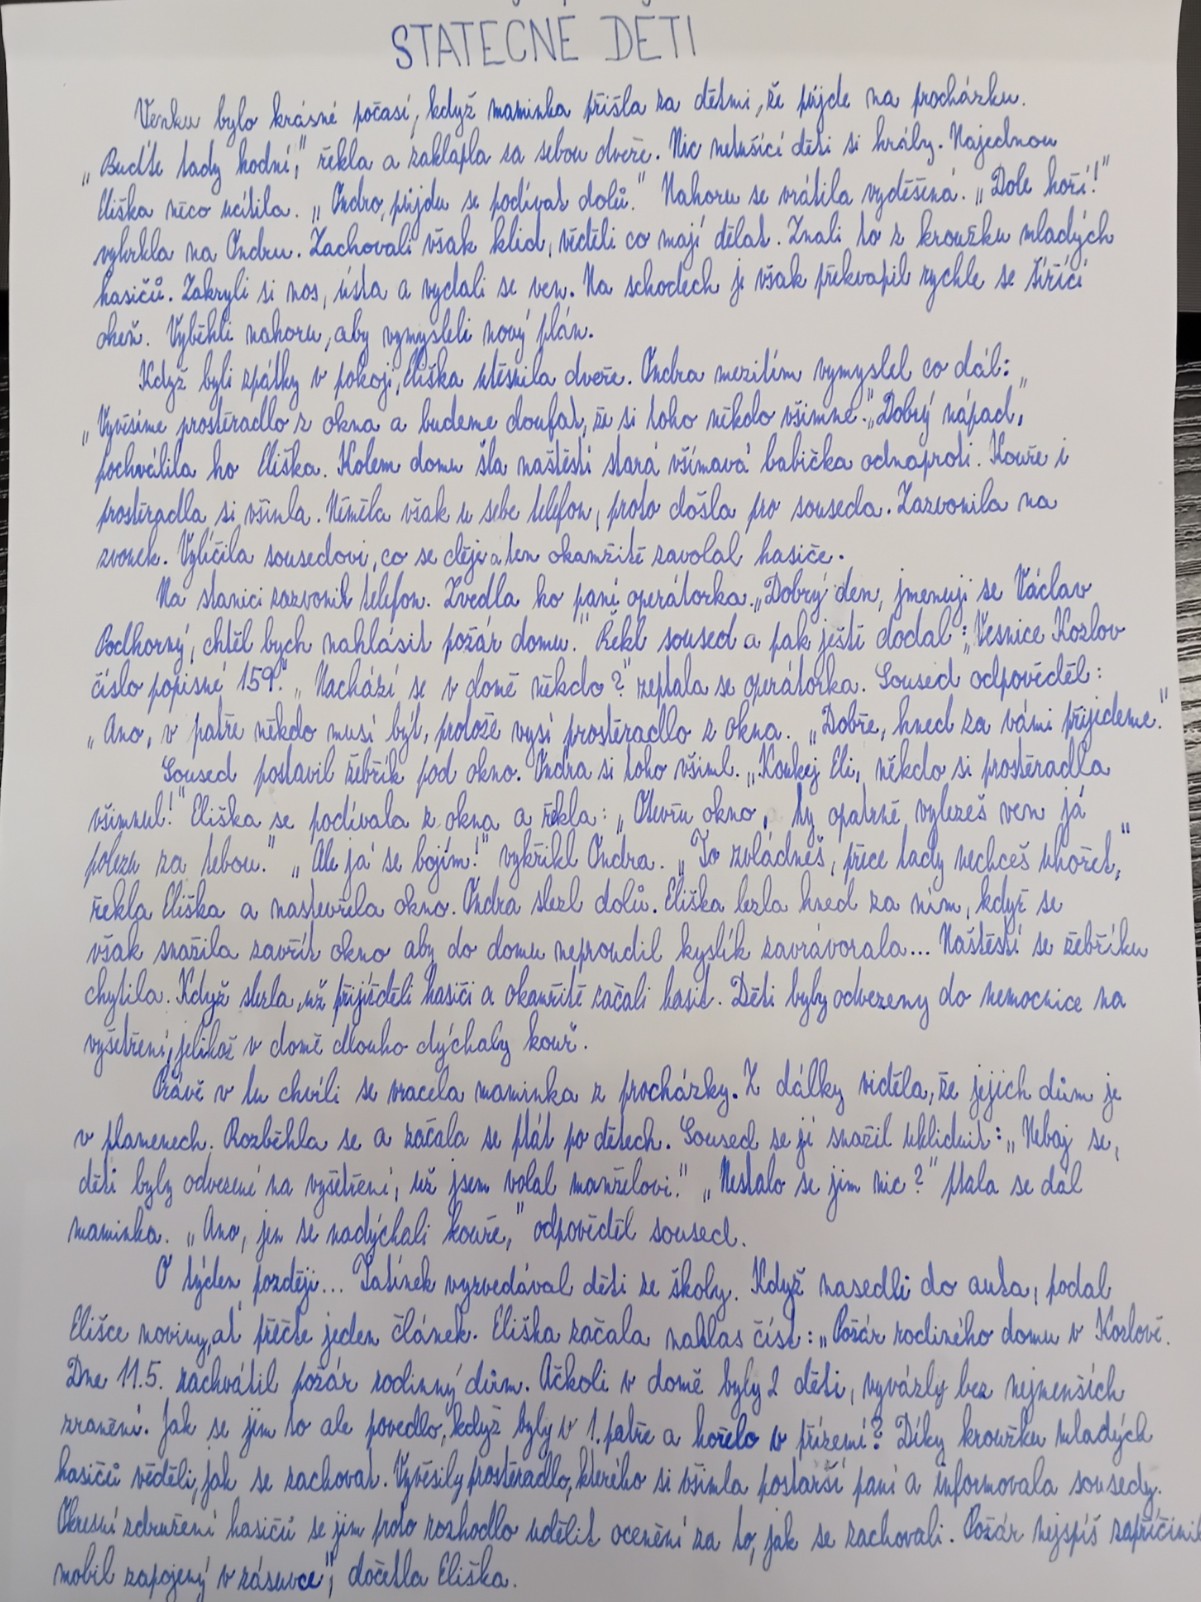 STATEČNÉ DĚTI
Venku bylo krásné počasí, když maminka přišla za dětmi, že půjde na procházku.
„Buďte tady hodní," řekla a zaklapla za sebou dveře. Nic netušící děti si hrály. Najednou
Eliška něco ucítila. „Ondro, půjdu se podívat dolů." Nahoru se vrátila vyděšená. „Dole hoří!"
vyhrkla na Ondru. Zachovali však klid, věděli co mají dělat. Znali to z kroužku mladých
hasičů. Zakryli si nos, ústa a vydali se ven. Na schodech je však překvapil rychle se šířící
oheň. Vyběhli nahoru, aby vymysleli nový plán.
Když byli zpátky v pokoji, Eliška utěsnila dveře. Ondra mezitím vymyslel co dál:
„Vyvěsíme prostěradlo z okna a budeme doufat, že si toho někdo všimne." „Dobrý nápad,"
pochválila ho Eliška. Kolem domu šla naštěstí stará všímavá babička odnaproti. Kouře i
prostěradla si všimla. Neměla však u sebe telefon, proto došla pro souseda. Zazvonila na
zvonek. Vylíčila sousedovi, co se děje a ten okamžitě zavolal hasiče.
Na stanici zazvonil telefon. Zvedla ho paní operátorka. „Dobrý den, jmenuji se Václav
Podhorný, chtěl bych nahlásit požár domu." Řekl soused a pak ještě dodal: „Vesnice Kozlov
číslo popisné 159." „Nachází se v domě někdo?" zeptala se operátorka. Soused odpověděl:
„Ano, v patře někdo musí být, protože vysí prostěradlo z okna. „Dobře, hned za vámi přijedeme."
Soused postavil žebřík pod okno. Ondra si toho všiml. „Koukej Eli, někdo si prostěradla
všimnul!" Eliška se podívala z okna a řekla: „Otevřu okno, ty opatrně vylezeš ven já
polezu za tebou." „Ale já se bojím!" vykřikl Ondra. „To zvládneš, přece tady nechceš uhořet,"
řekla Eliška a nastevřela okno. Ondra slezl dolů. Eliška lezla hned za ním, když se
však snažila zavřít okno aby do domu neproudil kyslík zavrávorala... Naštěstí se žebříku
chytila. Když slezla, už přijížděli hasiči a okamžitě začali hasit. Děti byly odvezeny do nemocnice na
vyšetření, jelikož v domě dlouho dýchaly kouř.
Právě v tu chvíli se vracela maminka z procházky. Z dálky viděla, že jejich dům je
v plamenech. Rozběhla se a začala se ptát po dětech. Soused se jí snažil uklidnit: „Neboj se,
děti byly odvezené na vyšetření, už jsem volal manželovi." „Nestalo se jim nic?" ptala se dál
maminka. „Ano, jen se nadýchali kouře," odpověděl soused.
O týden později... Tatínek vyzvedával děti ze školy. Když nasedli do auta, podal
Elišce noviny, ať přečte jeden článek. Eliška začala nahlas číst: „Požár rodiného domu v Kozlově.
Dne 11.5. zachvátil požár rodinný dům. Ačkoli v domě byly 2 děti, vyvázly bez nejmenších
zranění. Jak se jim to ale povedlo, když byly v 1. patře a hořelo v přízemí? Díky kroužku mladých
hasičů věděli, jak se zachovat. Vyvěsily prostěradlo, kterého si všimla postarší paní a informovala sousedy.
Okresní združení hasičů se jim proto rozhodlo udělit ocenění za to, jak se zachovali. Požár nejspíš zapříčinil
mobil zapojený v zásuvce", dočetla Eliška.